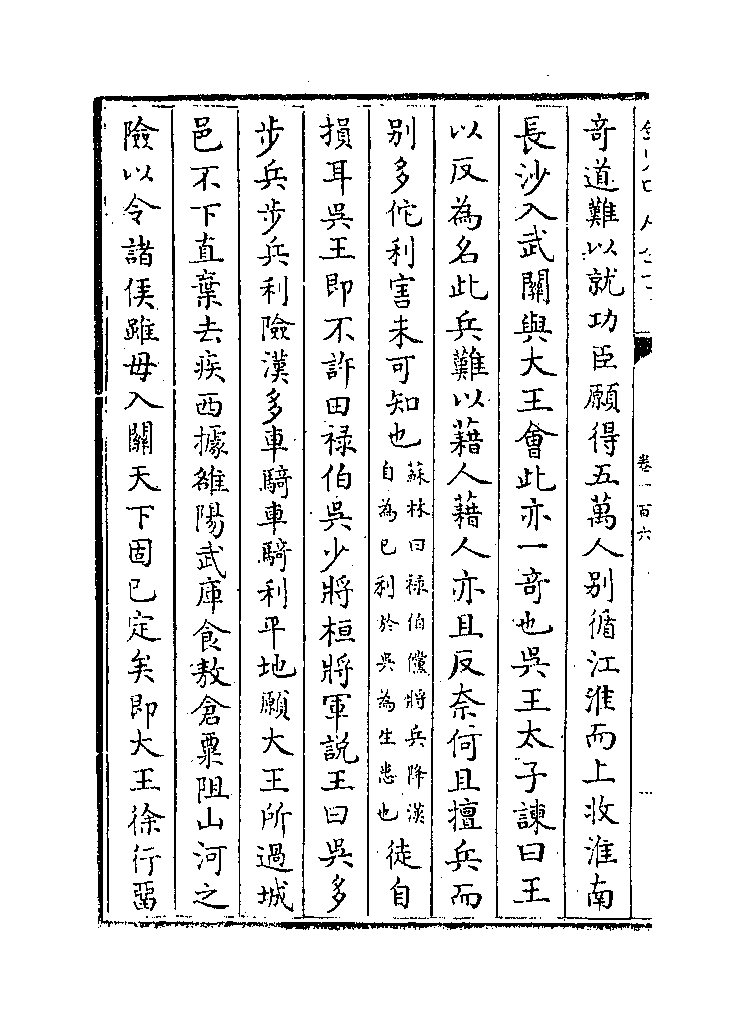 竒道難以就功臣願得五萬人別循江淮而上收淮南
長沙入武關與大王會此亦一竒也吳王太子諫曰王
以反為名此兵難以藉人藉人亦且反奈何且擅兵而
別多佗利害未可知也蘇林曰禄伯儻將兵降漢自為己利於吳為生患也徒自
損耳吳王即不許田禄伯吳少將桓將軍説王曰吳多
步兵步兵利險漢多車騎車騎利平地願大王所過城
邑不下直棄去疾西據雒陽武庫食敖倉粟阻山河之
險以令諸侯雖毋入關天下固已定矣即大王徐行留
卷一百六